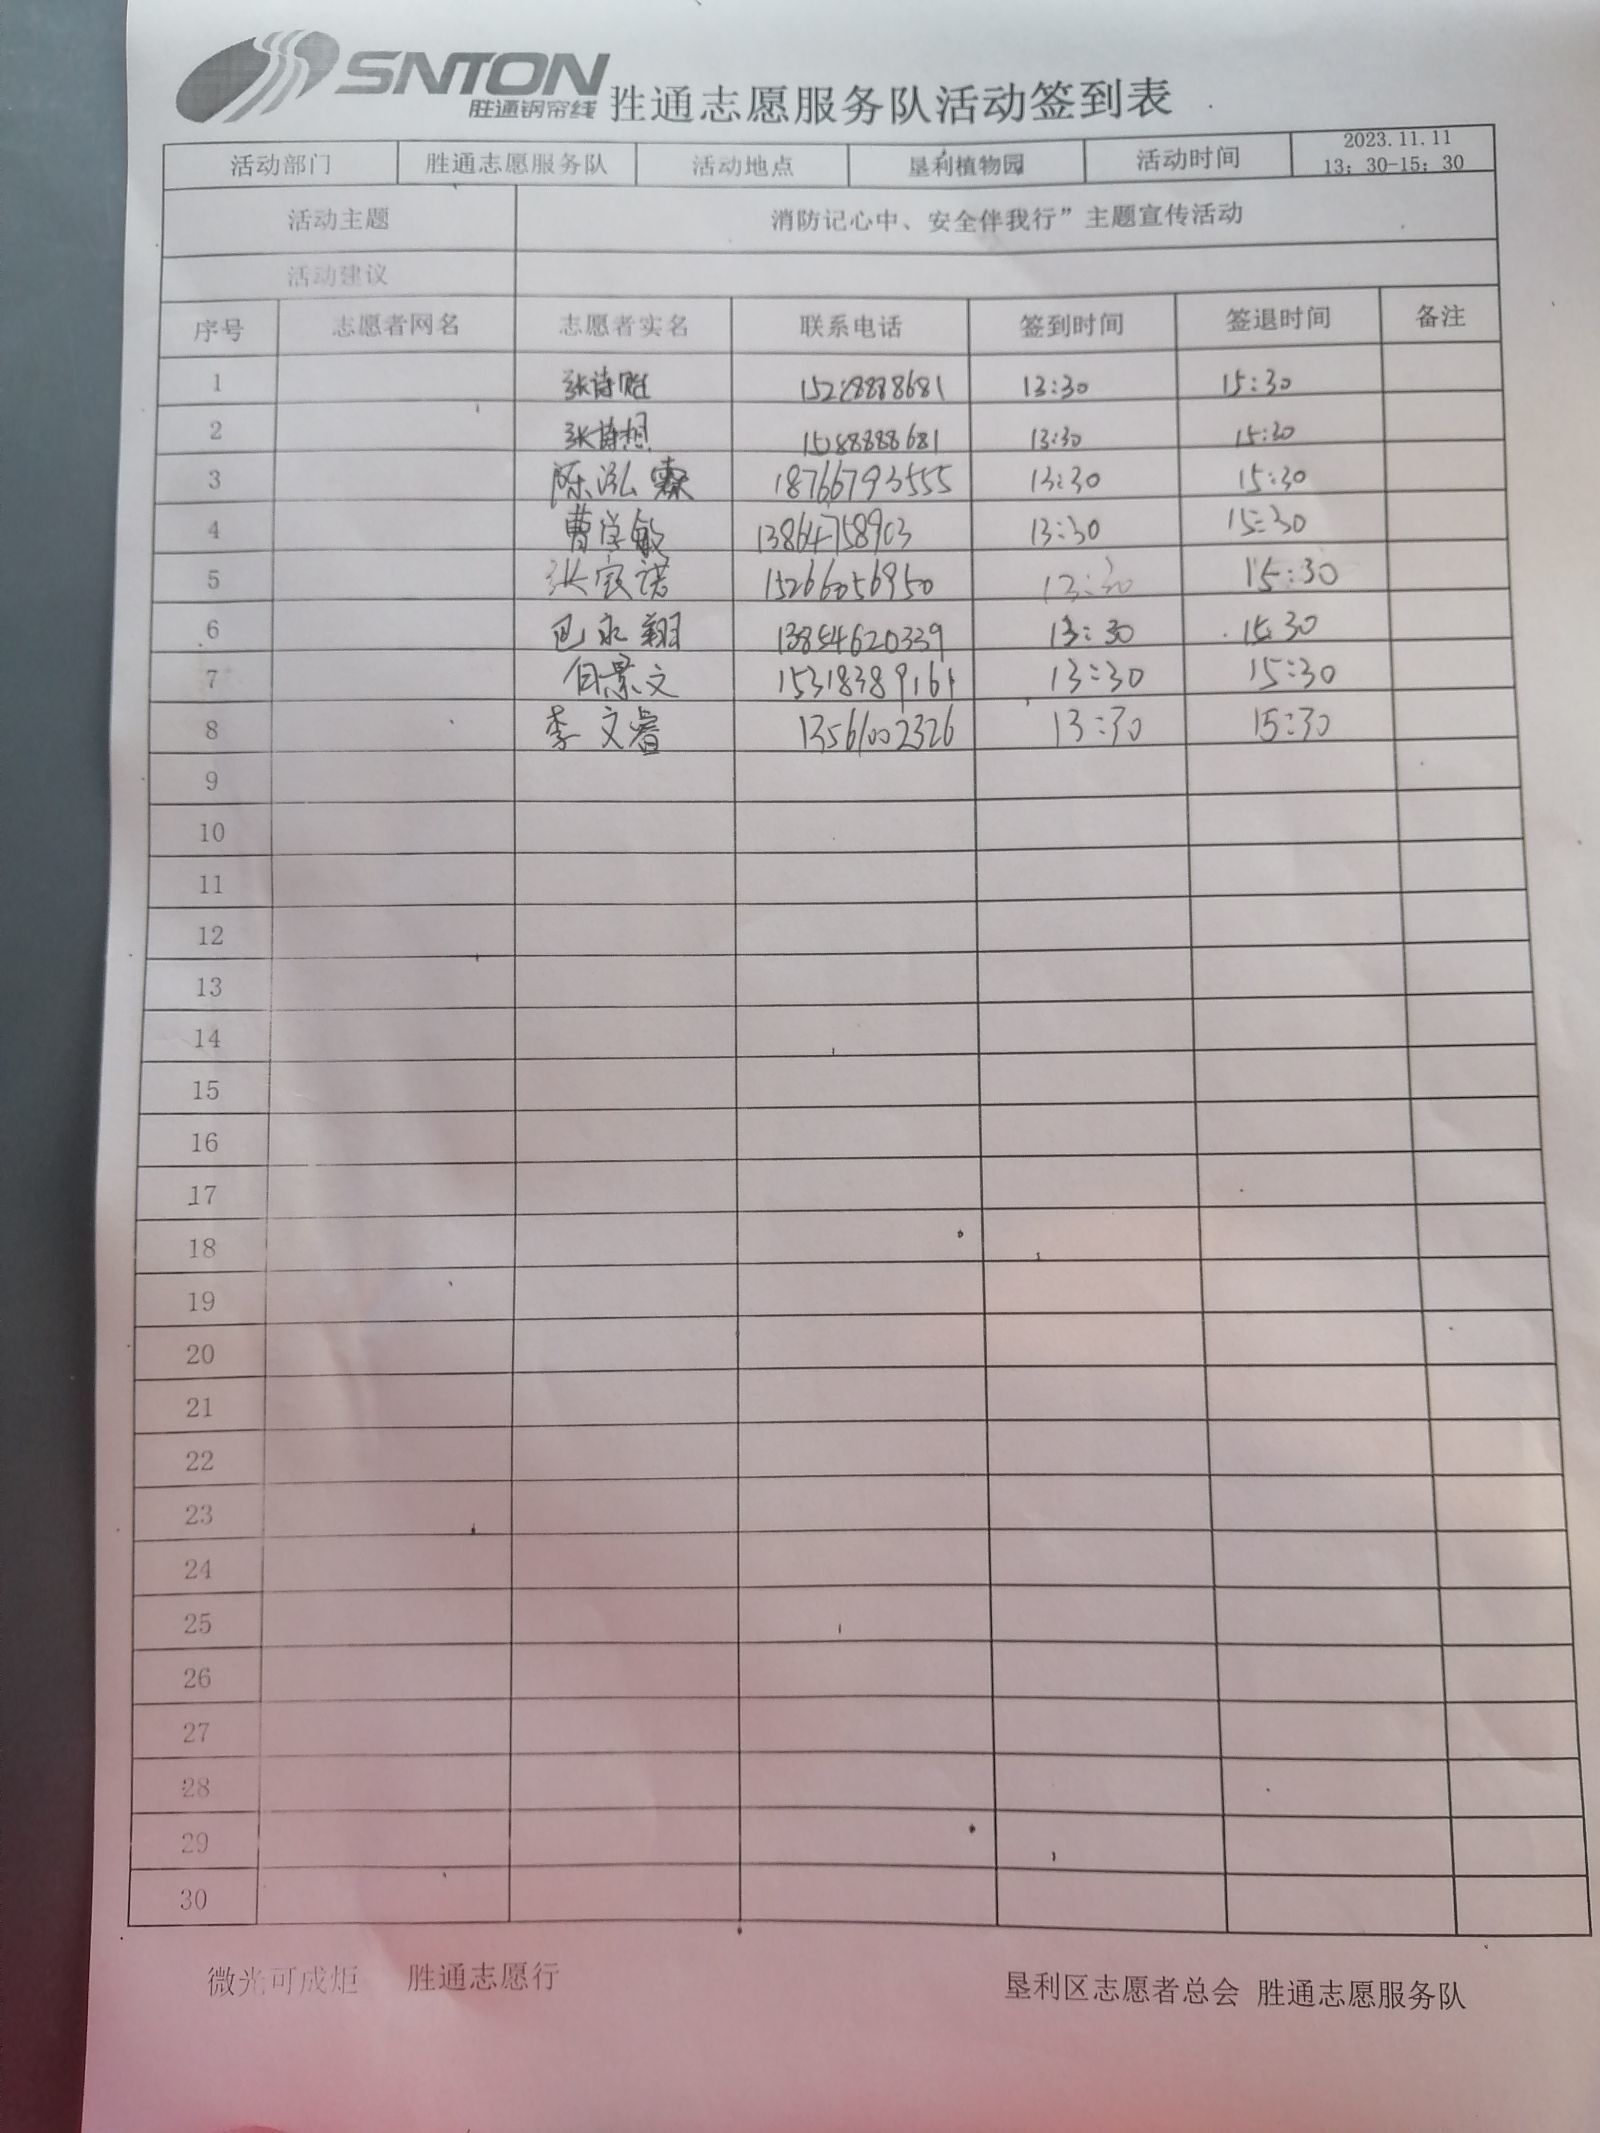 SNTON
胜通钢帘线 胜通志愿服务队活动签到表
活动部门 胜通志愿服务队 活动地点 垦利植物园 活动时间 2023.11.11
13：30-15：30
活动主题 消防记心中、安全伴我行”主题宣传活动
活动建议
序号 志愿者网名 志愿者实名 联系电话 签到时间 签退时间 备注
1 张诗胜 13:30 15:30
2 张诗想 13:30 15:30
3 陈泓霖 18766793555 13:30 15:30
4 曹学敏 13864758903 13:30 15:30
5 15266056950 13:30 15:30
6 巴永翔 13854620339 13:30 15:30
7 15318389161 13:30 15:30
8 李文睿 13561002326 13:30 15:30
9
10
11
12
13
14
15
16
17
18
19
20
21
22
23
24
25
26
27
28
29
30
微光可成炬 胜通志愿行 垦利区志愿者总会 胜通志愿服务队